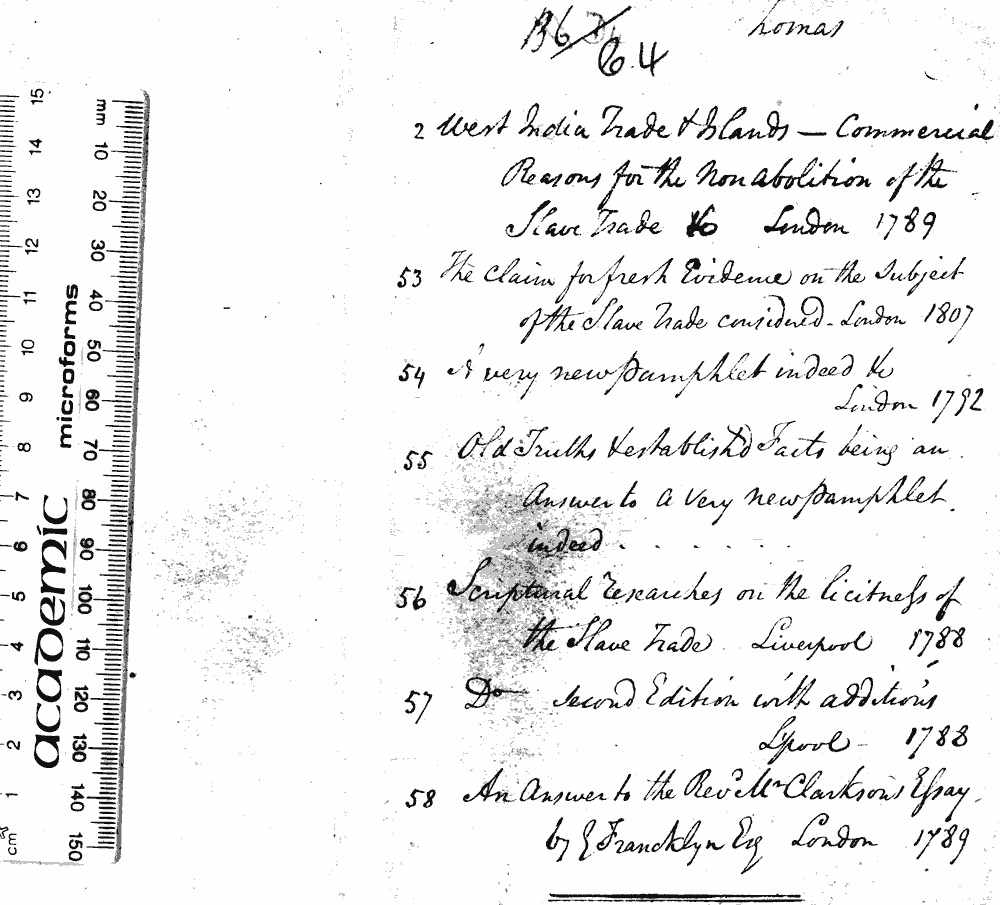 B6 D4 Thomas
C.4
2 West India Trade & Islands — Commercial
Reasons for the Non abolition of the
Slave Trade &c London 1789
53 The Claim for fresh Evidence on the Subject
of the Slave Trade considered - London 1807
54 A very new Pamphlet indeed &c
London 1792
55 Old Truths & establish'd Facts being an
Answer to a very new Pamphlet
indeed . . . . . .
56 Scriptural researches on the licitness of
the Slave Trade Liverpool 1788
57 Do second Edition with additions
Lpool - 1788
58 An Answer to the Revd Mr Clarksons Essay
by G Francklyn Esq London 1789
mm 10 20 30 40 50 60 70 80 90 100 110 120 130 140 150
academic microforms
15 14 13 12 11 10 9 8 7 6 5 4 3 2 1 cm